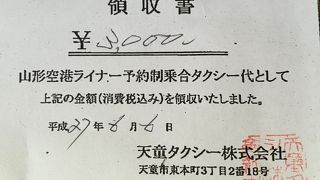 領収書
¥ 3,000
山形空港ライナー予約制乗合タクシー代として
上記の金額(消費税込み)を領収いたしました。
平成27年6月6日
天童タクシー株式会社
天童市東本町3丁目2番18号